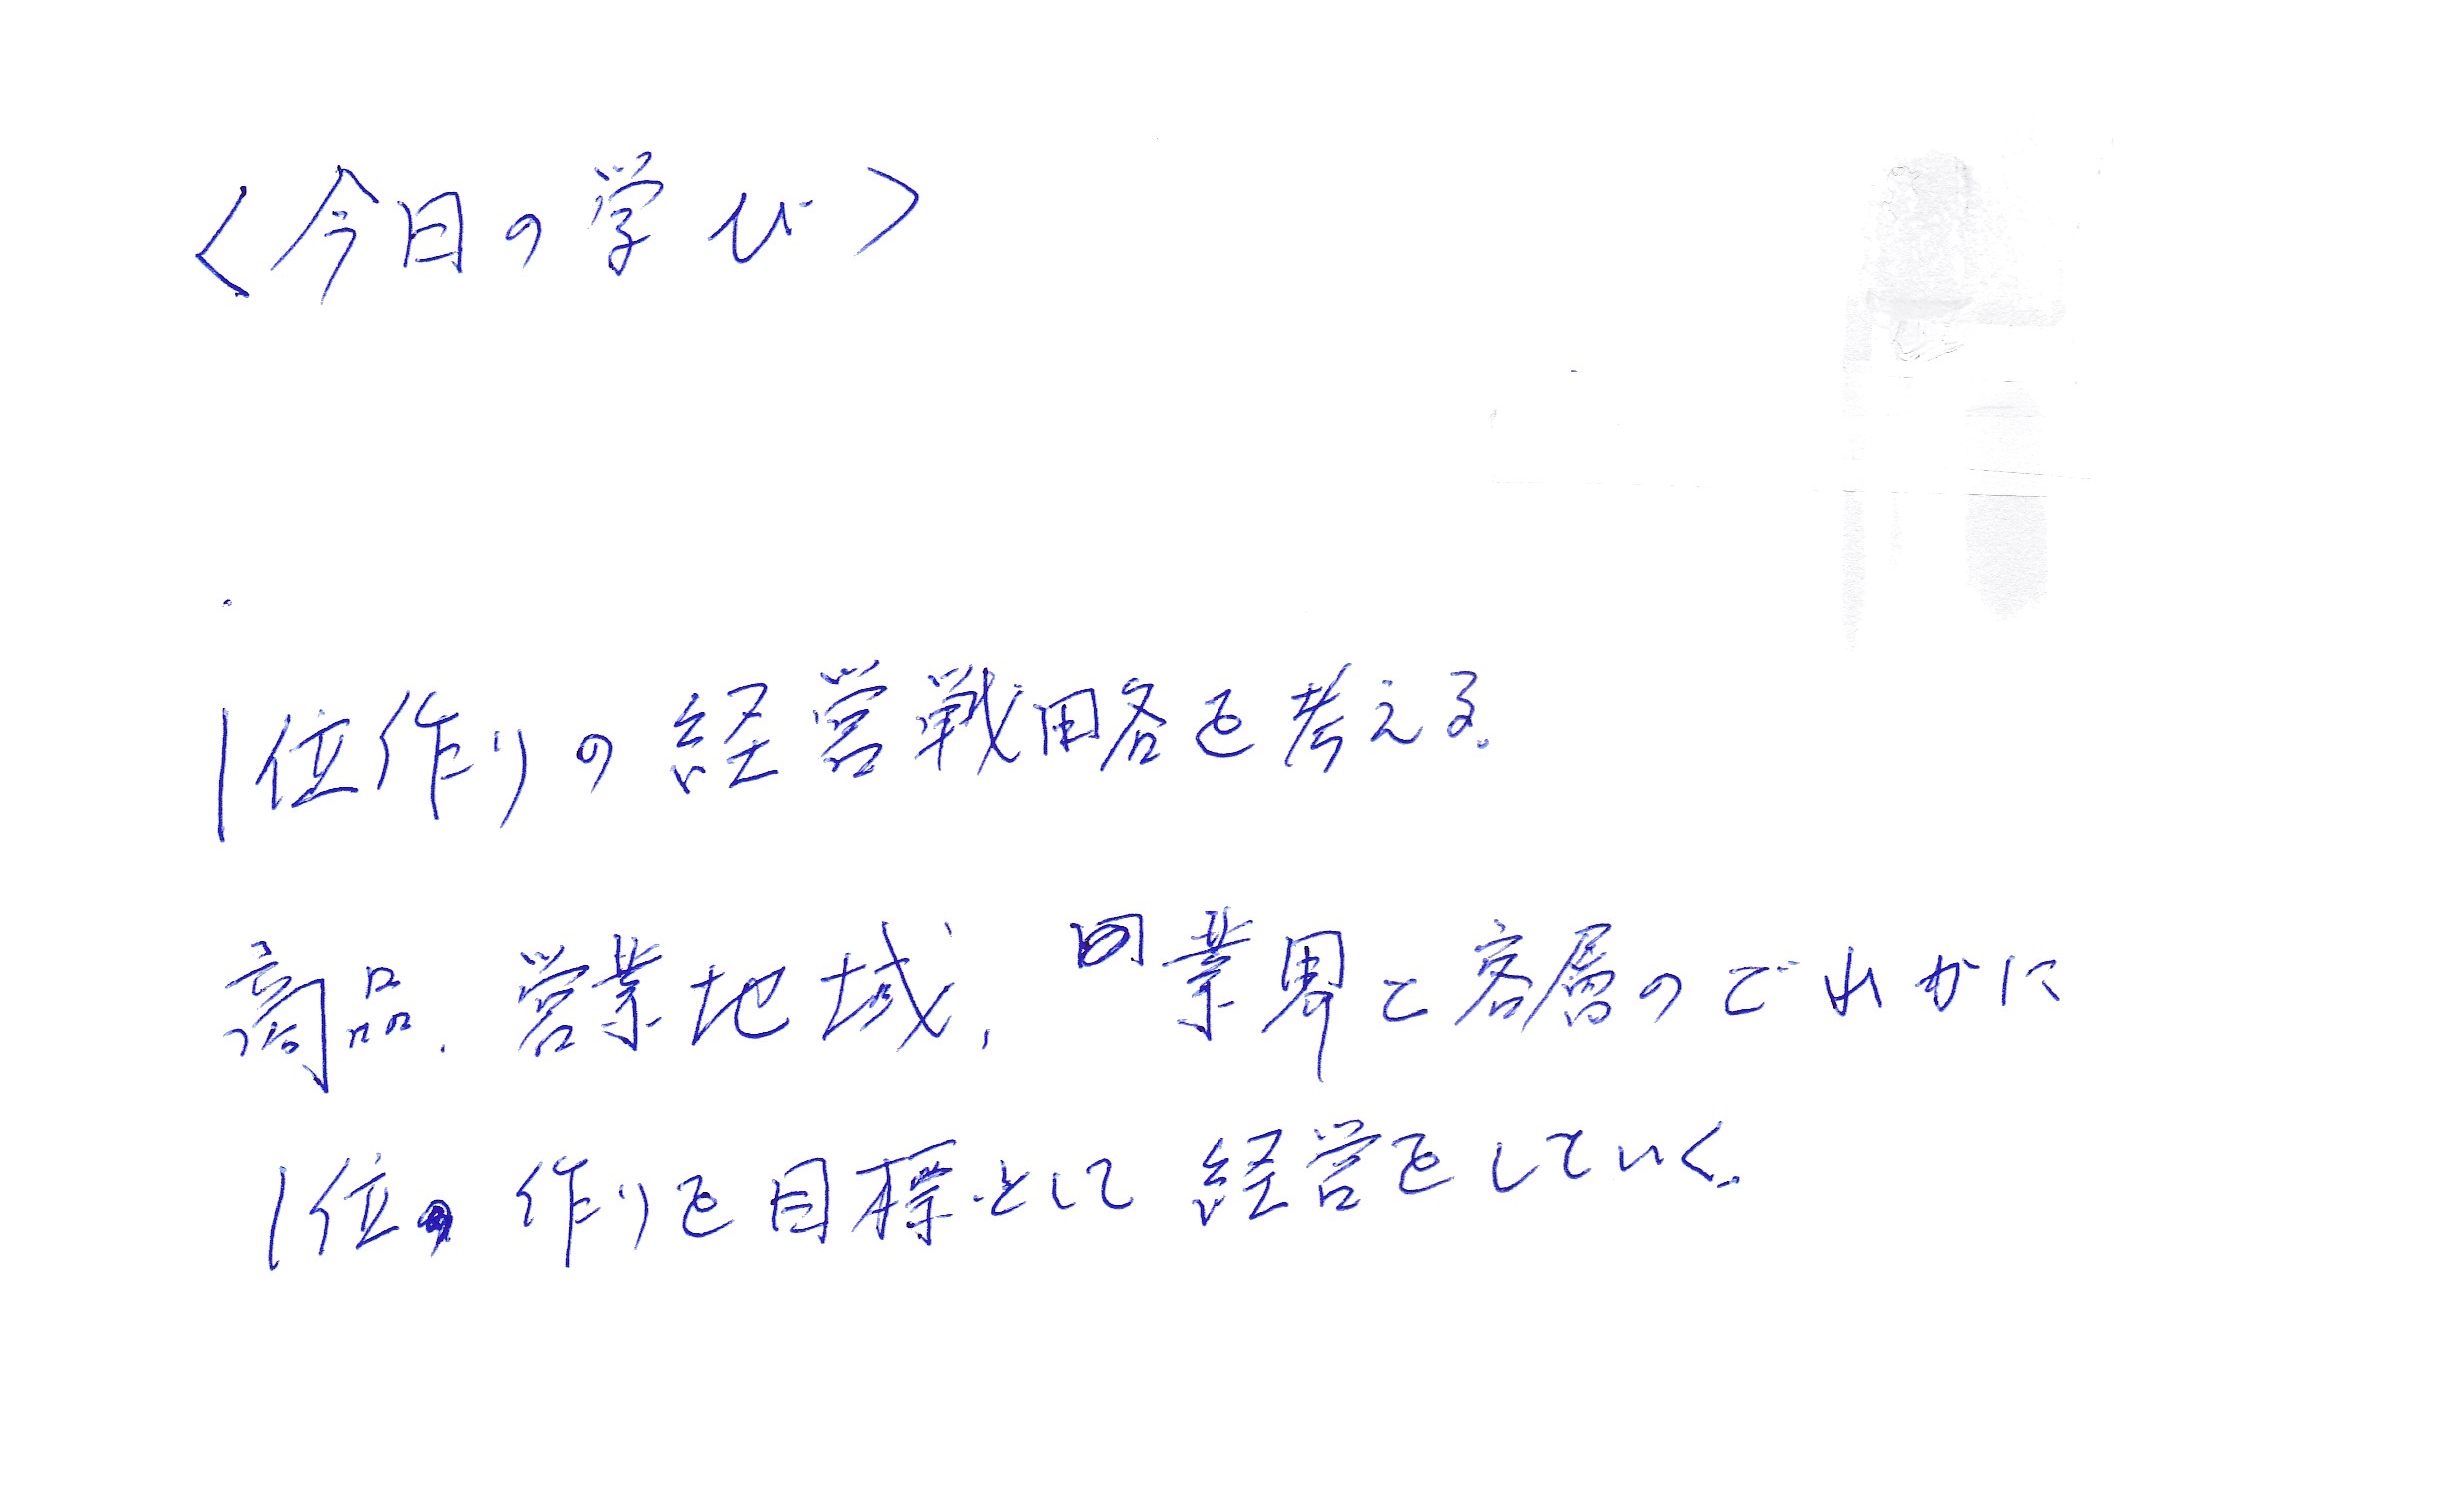 <今日の学び>
1位作りの経営戦略を考える。
商品、営業地域、業界と客層のどれかに
1位作りを目標として経営をしていく。